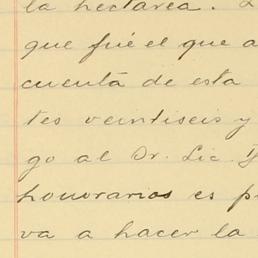 la hectárea.
que fué el que a
cuenta de esta
tes veintiseis y
go al Sr. Lic.
honorarios es p
va a hacer la